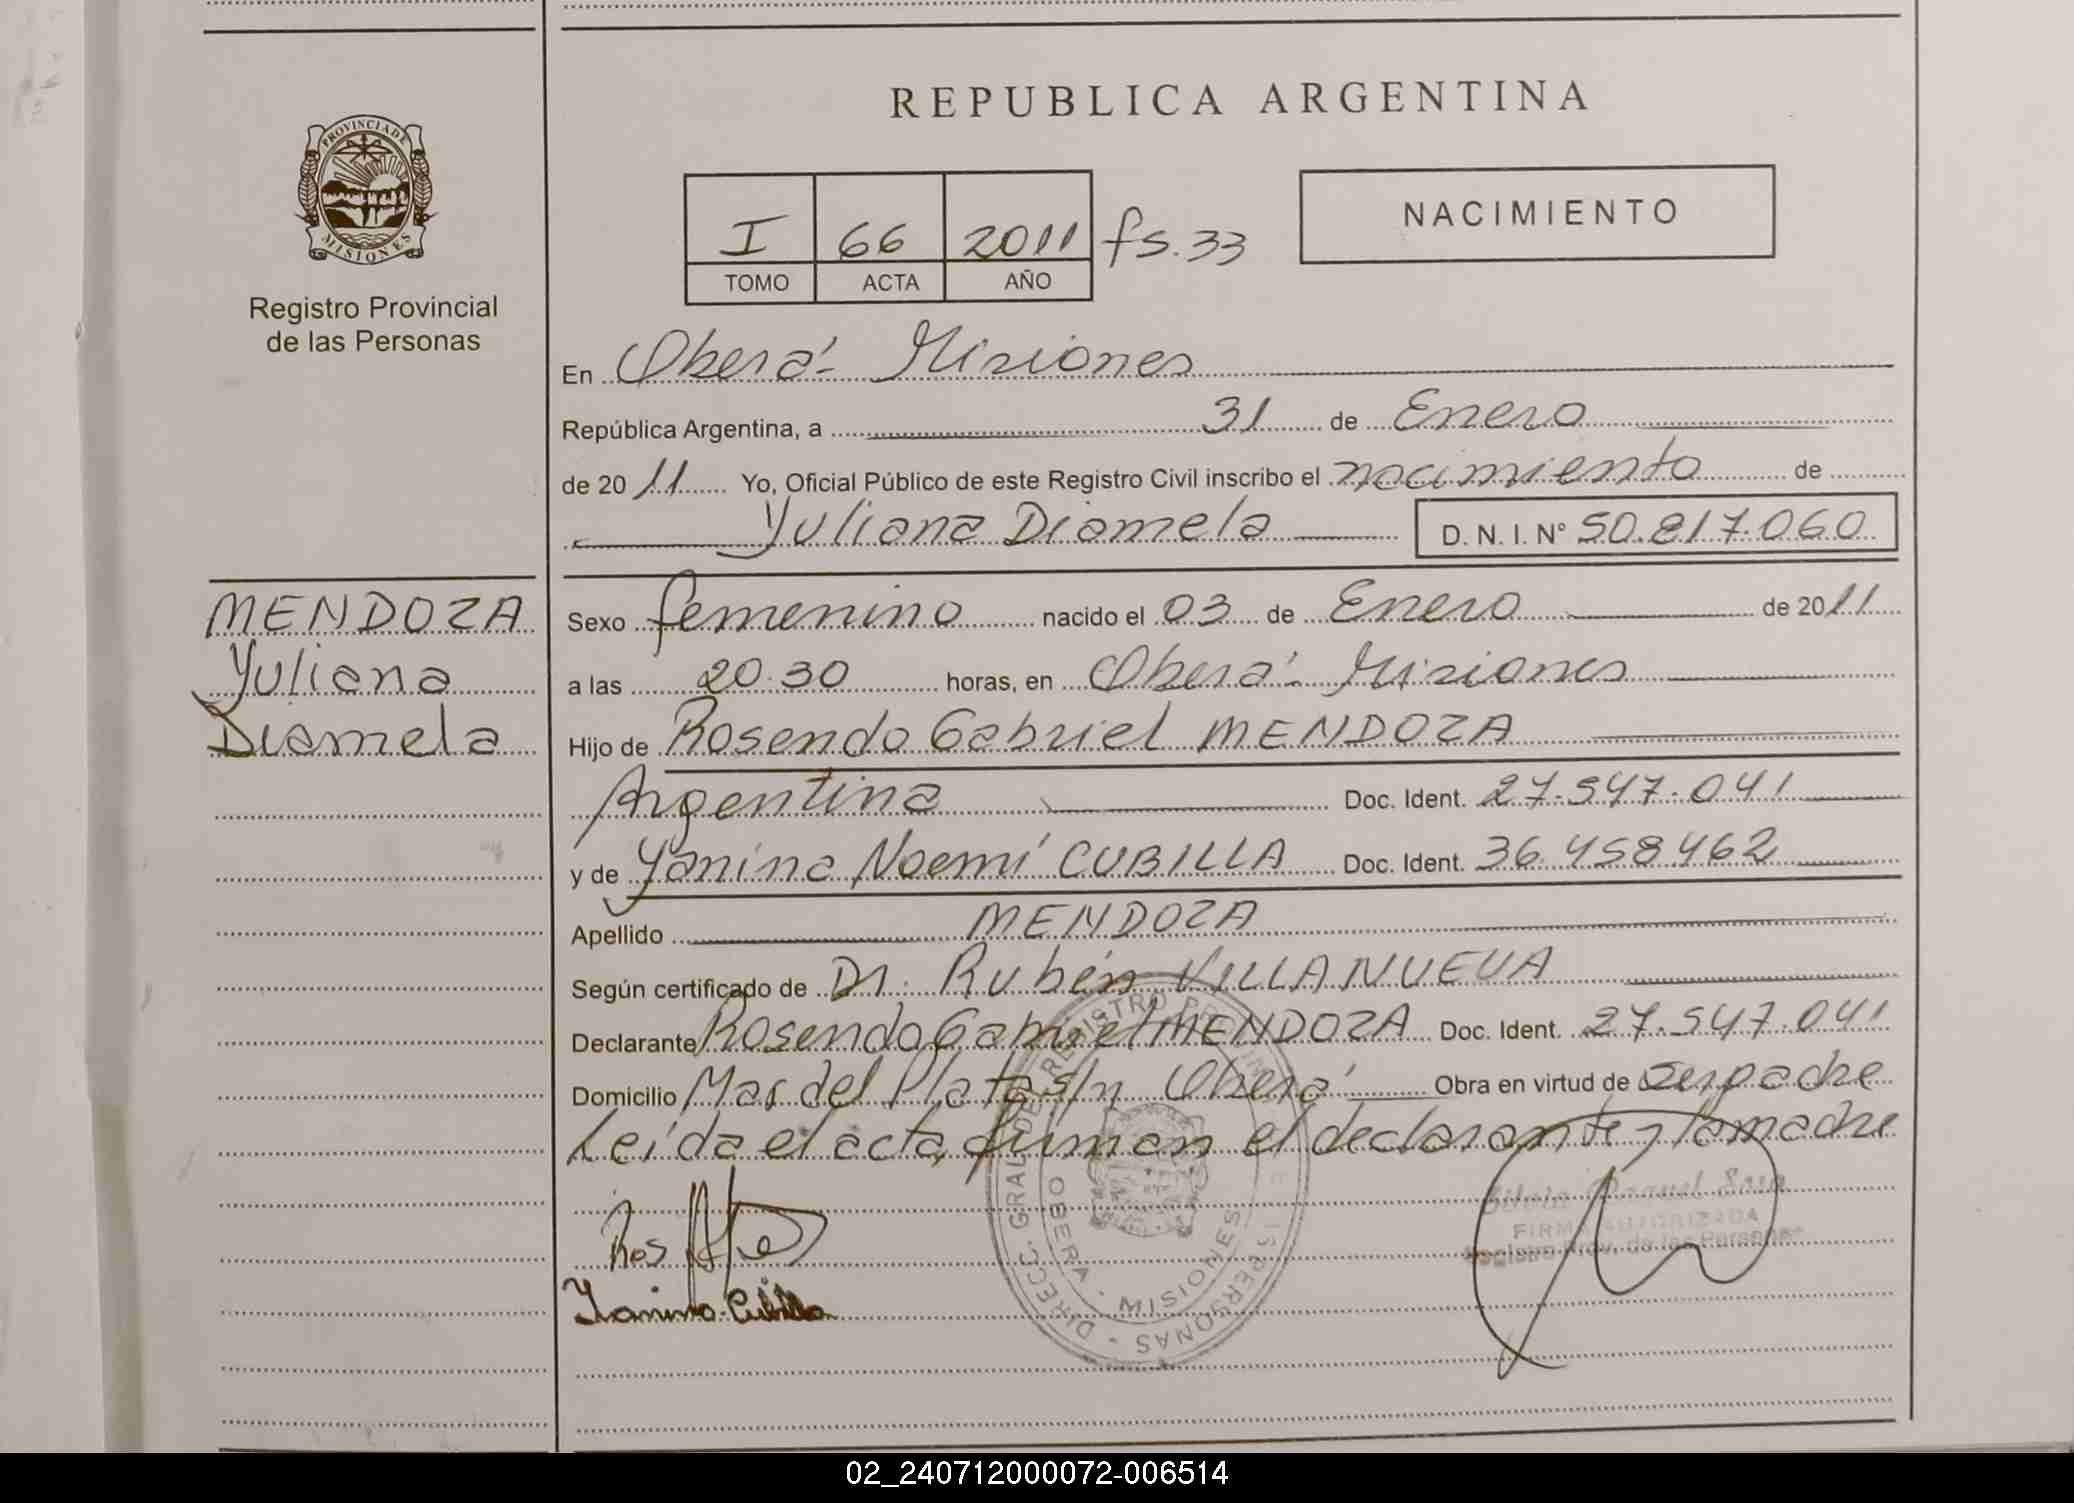 REPUBLICA ARGENTINA
PROVINCIA DE
MISIONES
Registro Provincial
de las Personas
I 66 2011 fs. 33
TOMO ACTA AÑO
NACIMIENTO
En Oberá - Misiones
República Argentina, a 31 de Enero
de 2011 Yo, Oficial Público de este Registro Civil inscribo el nacimiento de
Yuliana Diamela D. N. I. Nº 50.817.060
MENDOZA
Yuliana
Diamela
Sexo femenino nacido el 03 de Enero de 2011
a las 20.30 horas, en Oberá - Misiones
Hijo de Rosendo Gabriel MENDOZA
Argentina Doc. Ident. 27.547.041
y de Yanina Noemí CUBILLA Doc. Ident. 36.458.462
Apellido MENDOZA
Según certificado de Dr. Rubén VILLANUEVA
Declarante Rosendo Gabriel MENDOZA Doc. Ident. 27.547.041
Domicilio Mar del Plata s/n Oberá Obra en virtud de ser padre
Leída el acta, firman el declarante y la madre
Silvia Raquel
FIRMA AUTORIZADA
Registro Prov. de las Personas
Ros
Yanina Cubilla
DIRECC. GRAL. DEL REGISTRO PROVINCIAL DE LAS PERSONAS -
OBERA - MISIONES
02_240712000072-006514